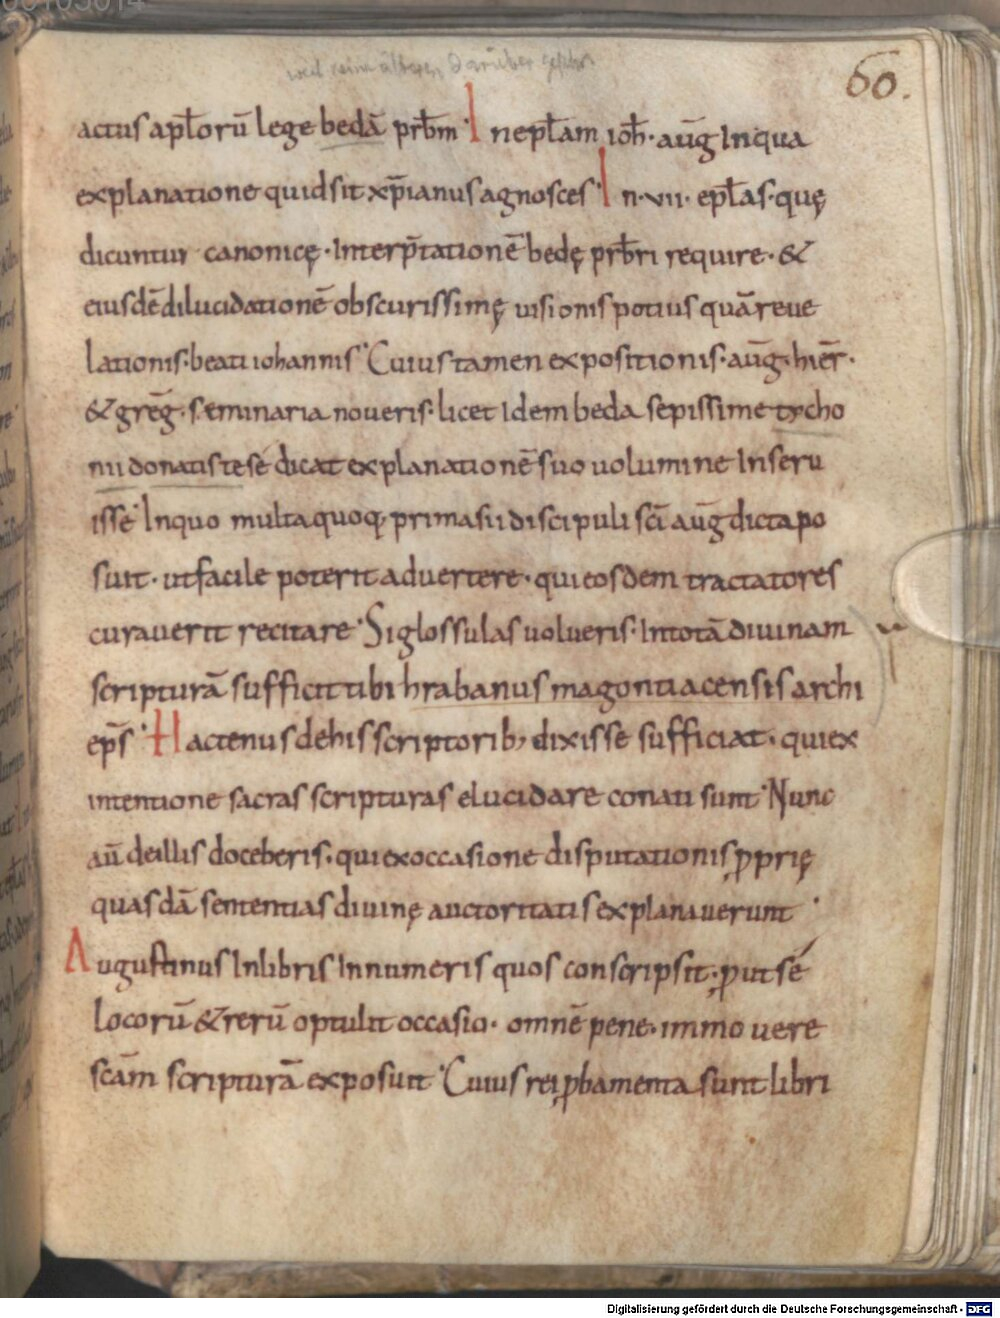 60.
actus apl̅oru̅ lege beda̅ prb̅m. In epl̅am ioh̅. au̅g In qua
explanatione quid sit xp̅ianus agnosces. In .vii. epl̅as. quę
dicuntur canonicę. Interp̅tatione̅ bedę prb̅ri require. &
eiusde̅ dilucidatione̅ obscurissimę uisionis potius qua̅ reue
lationis. beati iohannis. Cuius tamen expositionis. au̅g. hier̅.
& greg̅. seminaria noueris. licet Idem beda sepissime tycho
nii donatiste se dicat explanatione̅ suo uolumine Inseru
isse. In quo multa quoq; primasii discipuli sc̅i au̅g dicta po
suit. ut facile poterit aduertere. qui eosdem tractatores
curauerit recitare. Si glossulas uolueris. In tota̅ diuinam
scriptura̅ sufficit tibi hrabanus magontiacensis archi
ep̅s. Hactenus de his scriptorib; dixisse sufficiat. qui ex
intentione sacras scripturas elucidare conati sunt. Nunc
au̅ de illis doceberis. qui ex occasione disputationis ꝓprię
quasda̅ sententias diuinę auctoritatis explanauerunt.
Augustinus In libris Innumeris quos conscripsit. ꝓut se
locoru̅ & reru̅ optulit occasio. omne̅ pene. immo uere
sc̅am scriptura̅ exposuit. Cuius rei ꝓbamenta sunt libri
Digitalisierung gefördert durch die Deutsche Forschungsgemeinschaft - DFG